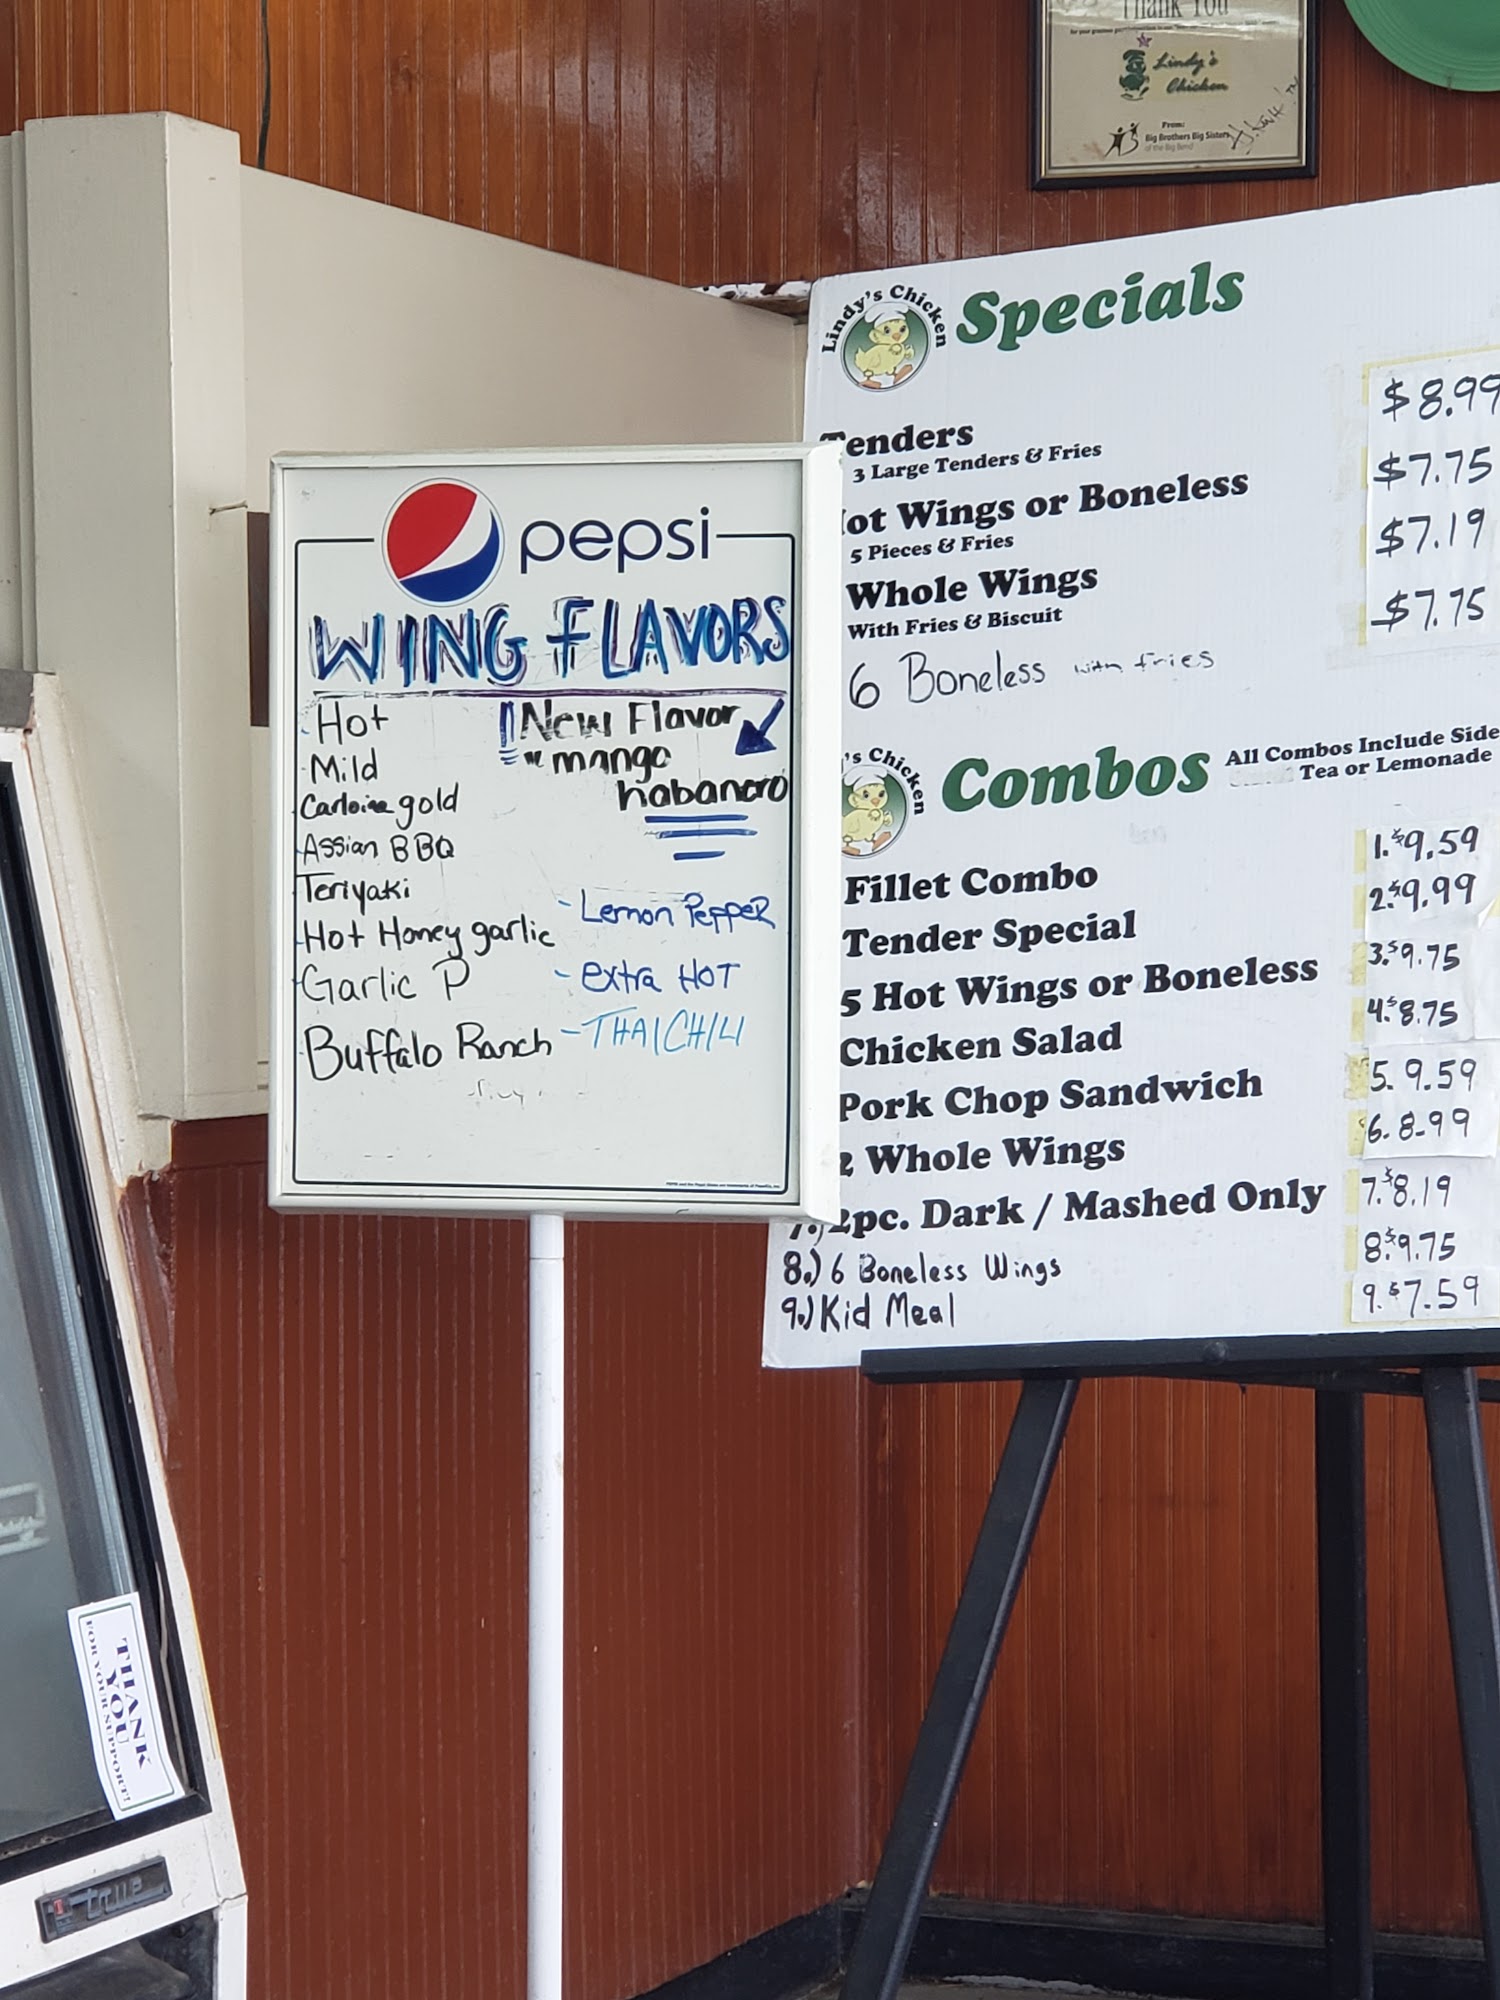 Thank You
Lindy's
Chicken
From:
Big Brothers Big Sisters
of the Big Bend
Lindy's Chicken
Specials
enders
$8.99
3 Large Tenders & Fries
ot Wings or Boneless
$7.75
5 Pieces & Fries
Whole Wings
$7.19
With Fries & Biscuit
6 Boneless with fries
$7.75
's Chicken
Combos
All Combos Include Side
Tea or Lemonade
Fillet Combo
1.$9.59
Tender Special
2.$9.99
5 Hot Wings or Boneless
3.$9.75
Chicken Salad
4.$8.75
Pork Chop Sandwich
5. 9.59
2 Whole Wings
$6. 8.99
7.) 2pc. Dark / Mashed Only
7.$8.19
8.) 6 Boneless Wings
8.$9.75
9.) Kid Meal
9.$7.59
pepsi
WING FLAVORS
- Hot
- Mild
Carloine gold
- Assian BBQ
Teriyaki
- Hot Honey garlic
Garlic P
Buffalo Ranch
!! New Flavor
mango
habanero
- Lemon PePPeR
- extra HOT
- THAI CHILI
THANK
YOU
FOR YOUR SUPPORT!
true